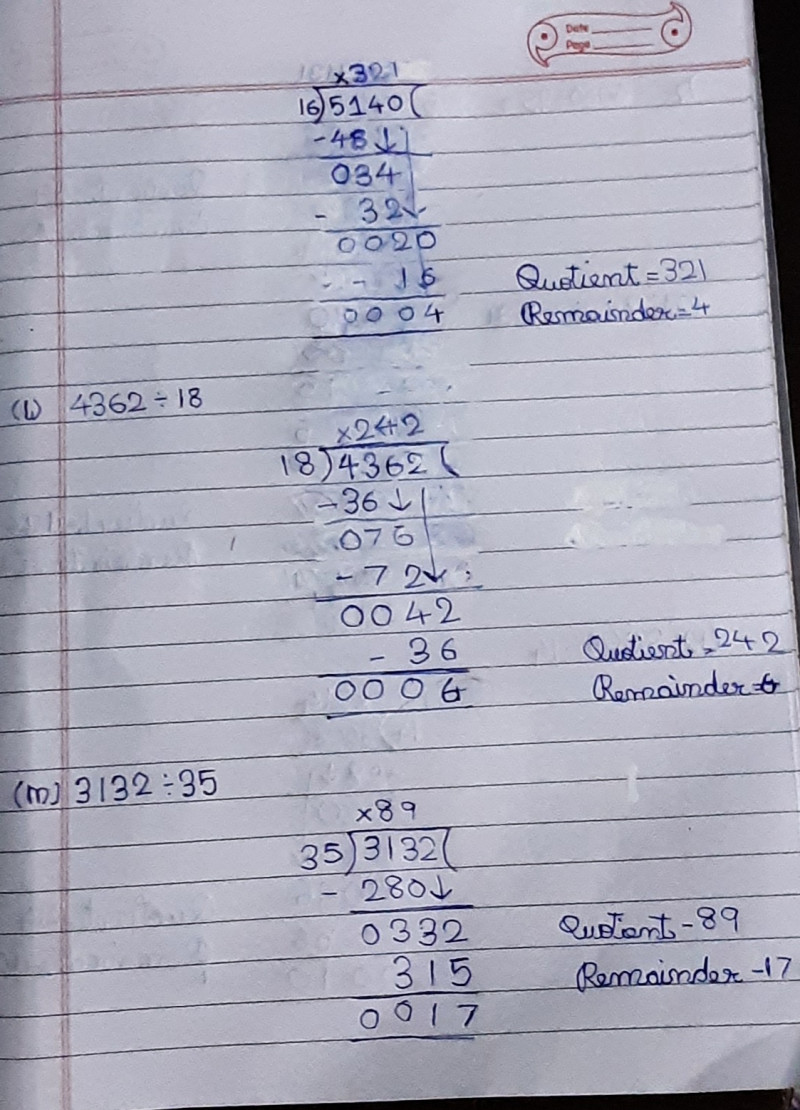 Date
Page
x321
16)5140(
-48↓
034
- 32↓
0020
- - 16
Quotient=321
0004
Remainder=4
(l) 4362÷18
x242
18)4362(
-36↓
076
-72↓
0042
- 36
Quotient=242
0006
Remainder=6
(m) 3132÷35
x89
35)3132(
- 280↓
0332
Quotient-89
315
Remainder-17
0017